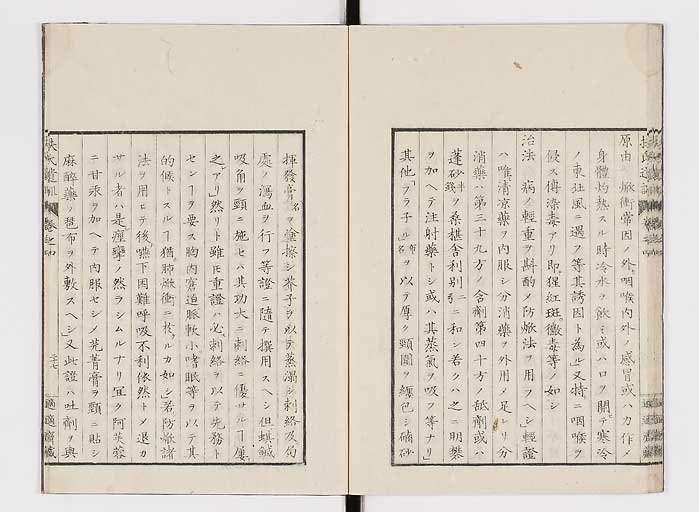 原由 焮衝常因ノ外咽喉内外ノ感冒或ハ力作メ
身體灼熱スル時冷水ヲ飲ミ或ハ口ヲ開テ寒冷
ノ東北風ニ遇フ等其誘因ト為ル又特ニ咽喉ヲ
侵ス傳染毒アリ即猩紅斑黴毒等ノ如シ
治法 病ノ輕重ヲ斟酌メ防焮法ヲ用フヘシ輕證
ハ唯清凉藥ヲ内服シ分消藥ヲ外用メ足レリ分
消藥ハ第三十九方ノ含劑第四十方ノ舐劑或ハ
蓬砂ヲ桑椹舍利別ニ和シ若クハ之ニ明礬
ヲ加ヘテ注射藥トシ或ハ其蒸氣ヲ吸フ等ナリ
其他フラ子ルヲ以テ厚ク頸圍ヲ纏包シ硇砂
揮發膏ヲ塗擦シ芥子ヲ以テ蒸溻シ刺絡及局
處ノ瀉血ヲ行フ等證ニ隨テ撰用スヘシ但蜞鍼
吸角ヲ頸ニ施セハ其功大ニ刺絡ニ優ルヿ屢
之アリ然リト雖モ重證ハ必刺絡ヲ以テ先務ト
センヿヲ要ス胸内窘迫脈軟小嗜眠等ヲ以テ其
的候トスルヿ猶肺焮衝ニ於ルカ如シ若防焮諸
法ヲ用ヒテ後嚥下困難呼吸不利依然トメ退カ
サル者ハ是痙攣ノ然ラシムルナリ宜ク阿芙蓉
ニ甘汞ヲ加ヘテ内服セシメ芫菁膏ヲ頸ニ貼シ
麻醉藥ノ琶布ヲ外敷スヘシ又此證ハ吐劑ヲ與
扶氏遺訓 卷之四
二十七
適適齋藏